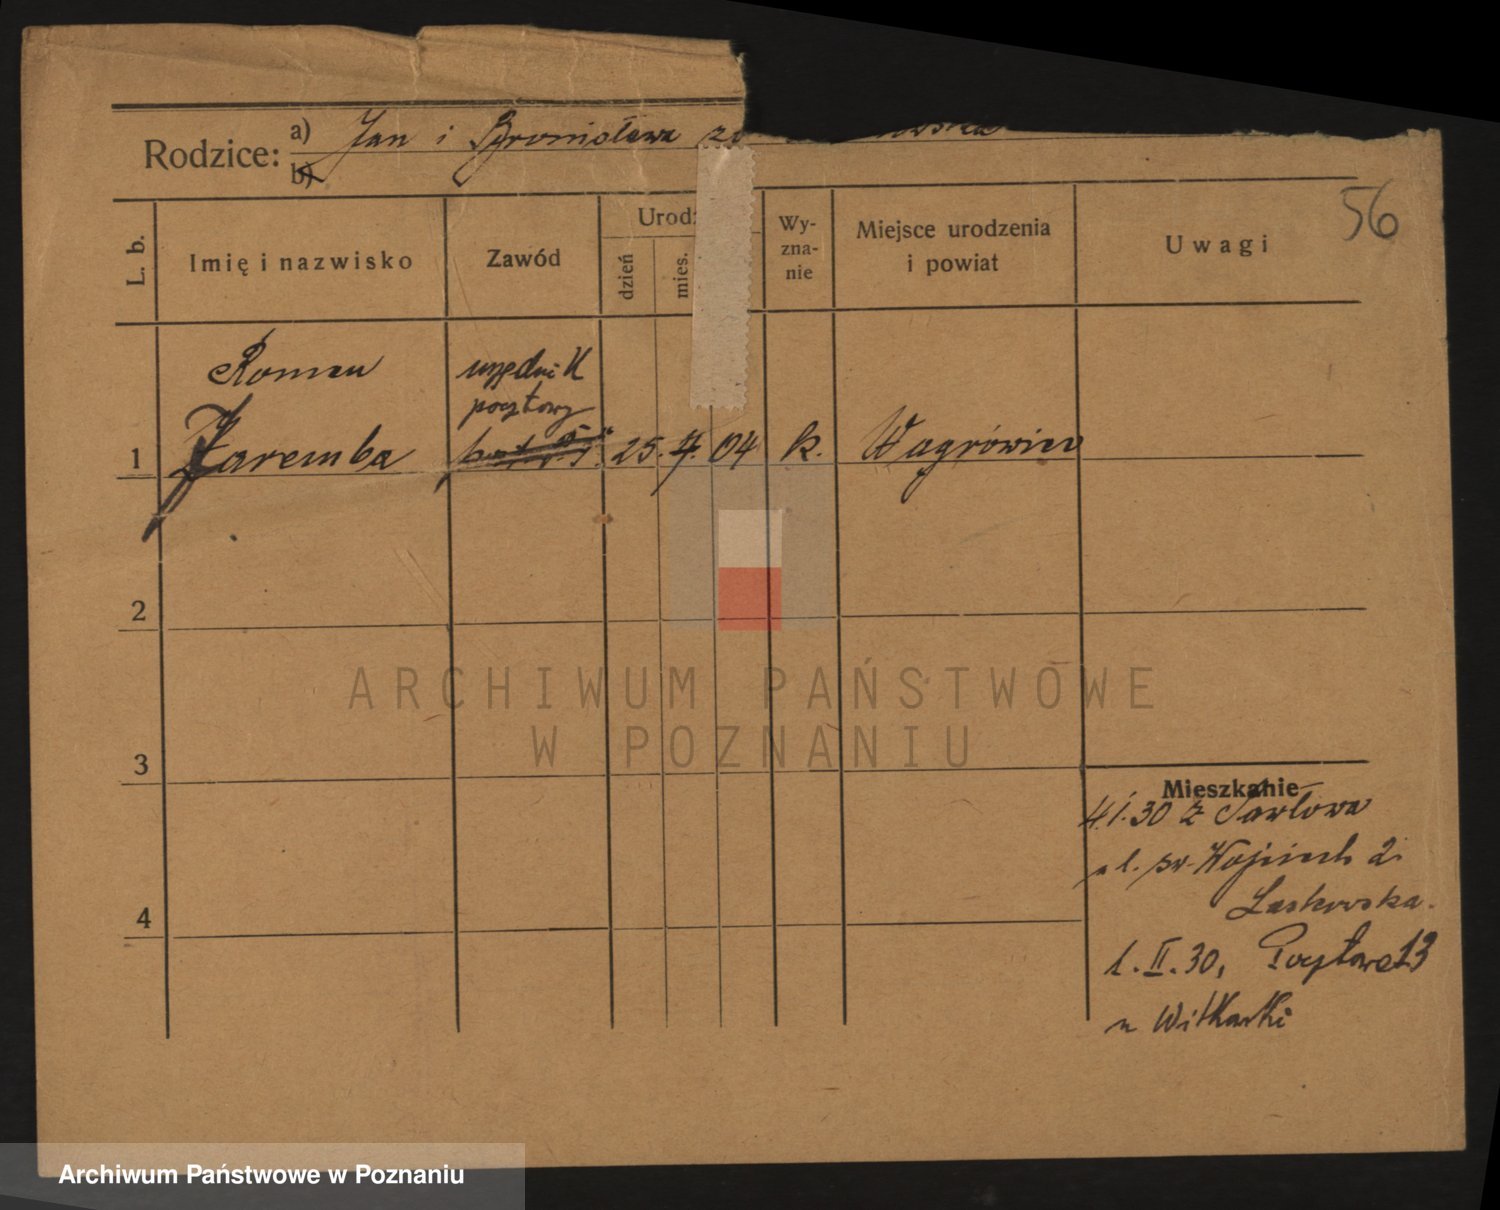 Rodzice:
a) Jan i Bronisława
b)
56
L. b.
Imię i nazwisko
Zawód
Urodz
dzień
mies.
Wy-
zna-
nie
Miejsce urodzenia
i powiat
Uwagi
Roman
urzędnik
pocztowy
1 Zaremba 25. 4. 04 k. Wągrówiec
2
3
4
Mieszkanie
4.I.30 z
ul. św. Wojciech 2.
Laskowska.
1.II.30, Pocztowa 13
u Witkowski
ARCHIWUM PAŃSTWOWE
W POZNANIU
Archiwum Państwowe w Poznaniu